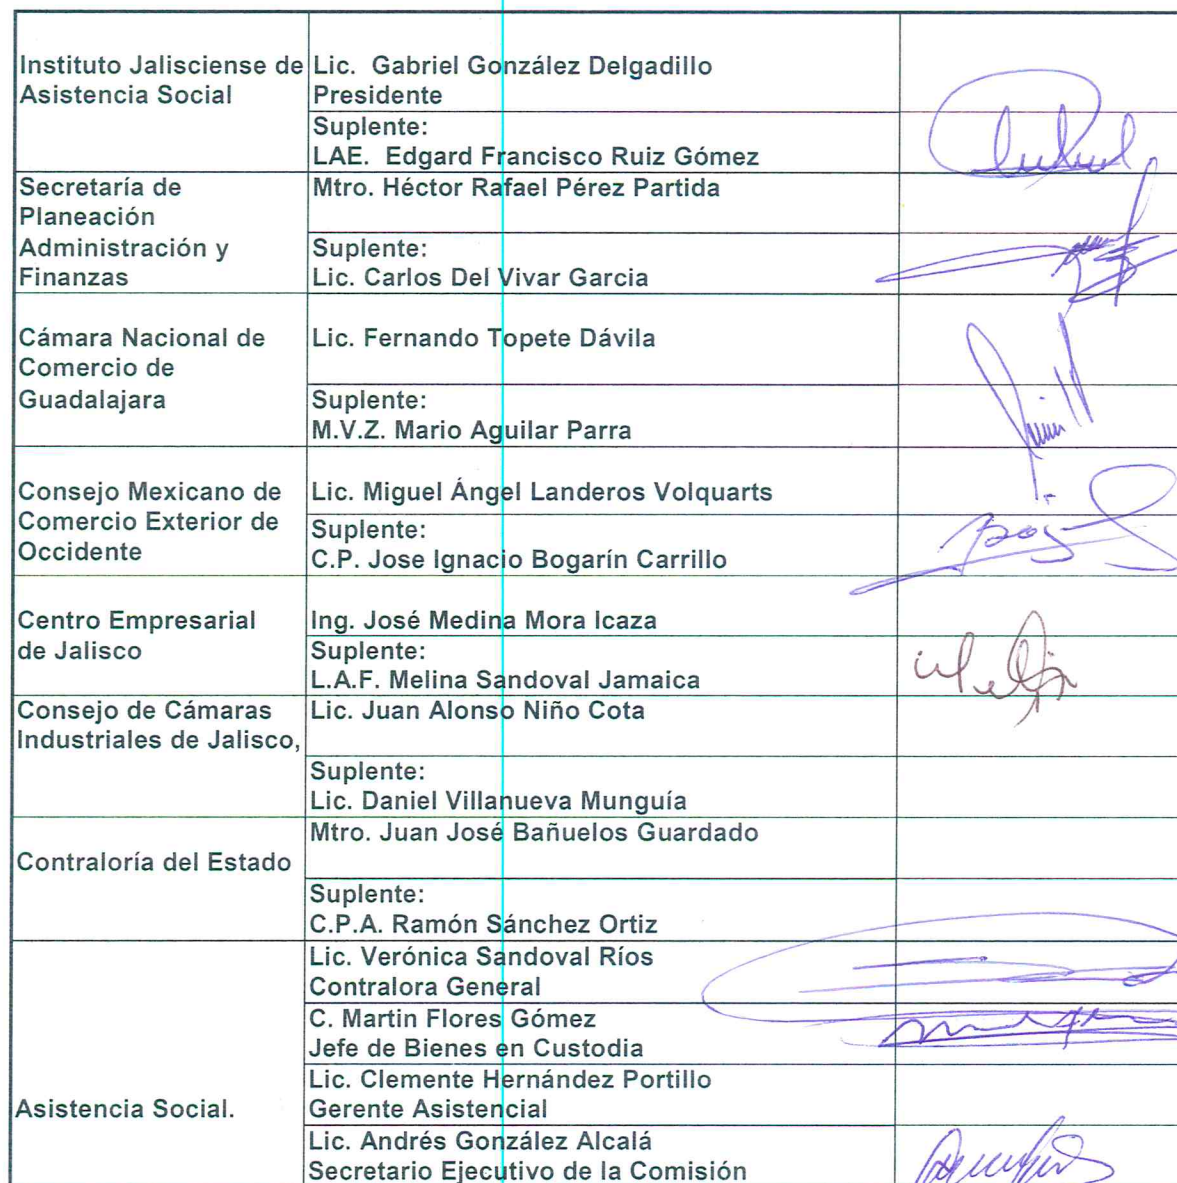 Instituto Jalisciense de
Asistencia Social
Lic. Gabriel González Delgadillo
Presidente
Suplente:
LAE. Edgard Francisco Ruiz Gómez
Secretaría de
Planeación
Administración y
Finanzas
Mtro. Héctor Rafael Pérez Partida
Suplente:
Lic. Carlos Del Vivar Garcia
Cámara Nacional de
Comercio de
Guadalajara
Lic. Fernando Topete Dávila
Suplente:
M.V.Z. Mario Aguilar Parra
Consejo Mexicano de
Comercio Exterior de
Occidente
Lic. Miguel Ángel Landeros Volquarts
Suplente:
C.P. Jose Ignacio Bogarín Carrillo
Centro Empresarial
de Jalisco
Ing. José Medina Mora Icaza
Suplente:
L.A.F. Melina Sandoval Jamaica
Consejo de Cámaras
Industriales de Jalisco,
Lic. Juan Alonso Niño Cota
Suplente:
Lic. Daniel Villanueva Munguía
Contraloría del Estado
Mtro. Juan José Bañuelos Guardado
Suplente:
C.P.A. Ramón Sánchez Ortiz
Asistencia Social.
Lic. Verónica Sandoval Ríos
Contralora General
C. Martin Flores Gómez
Jefe de Bienes en Custodia
Lic. Clemente Hernández Portillo
Gerente Asistencial
Lic. Andrés González Alcalá
Secretario Ejecutivo de la Comisión